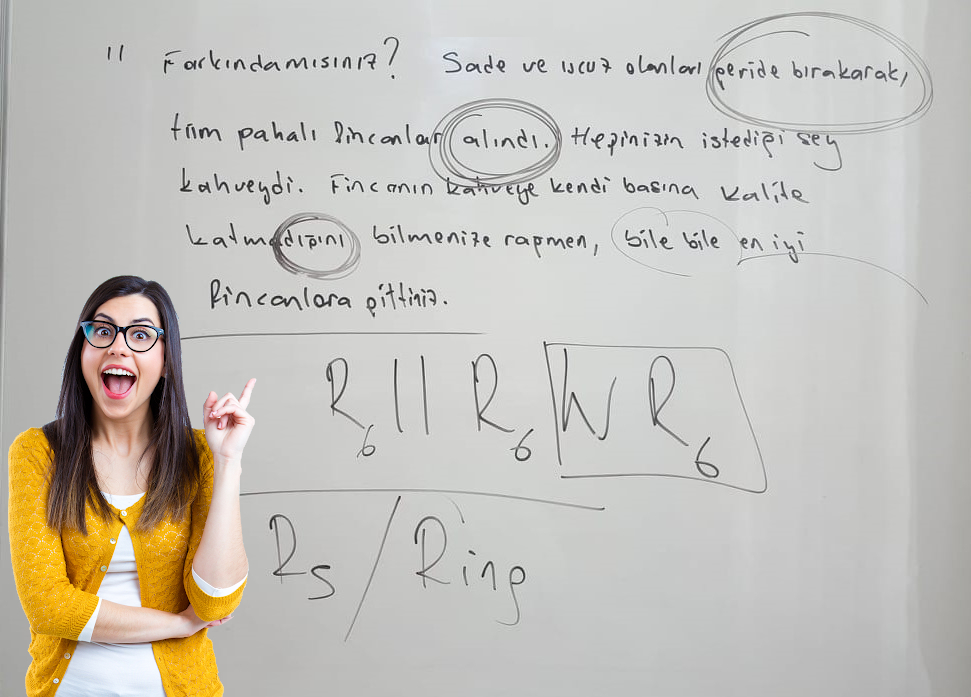 " Farkındamısınız? Sade ve ucuz olanları geride bırakarak,
tüm pahalı fincanlar alındı. Hepinizin istediği şey
kahveydi. Fincanın kahveye kendi başına kalite
katmadığını bilmenize rağmen, bile bile en iyi
fincanlara gittiniz.
R6 || R6 W R6
Rs / Ring